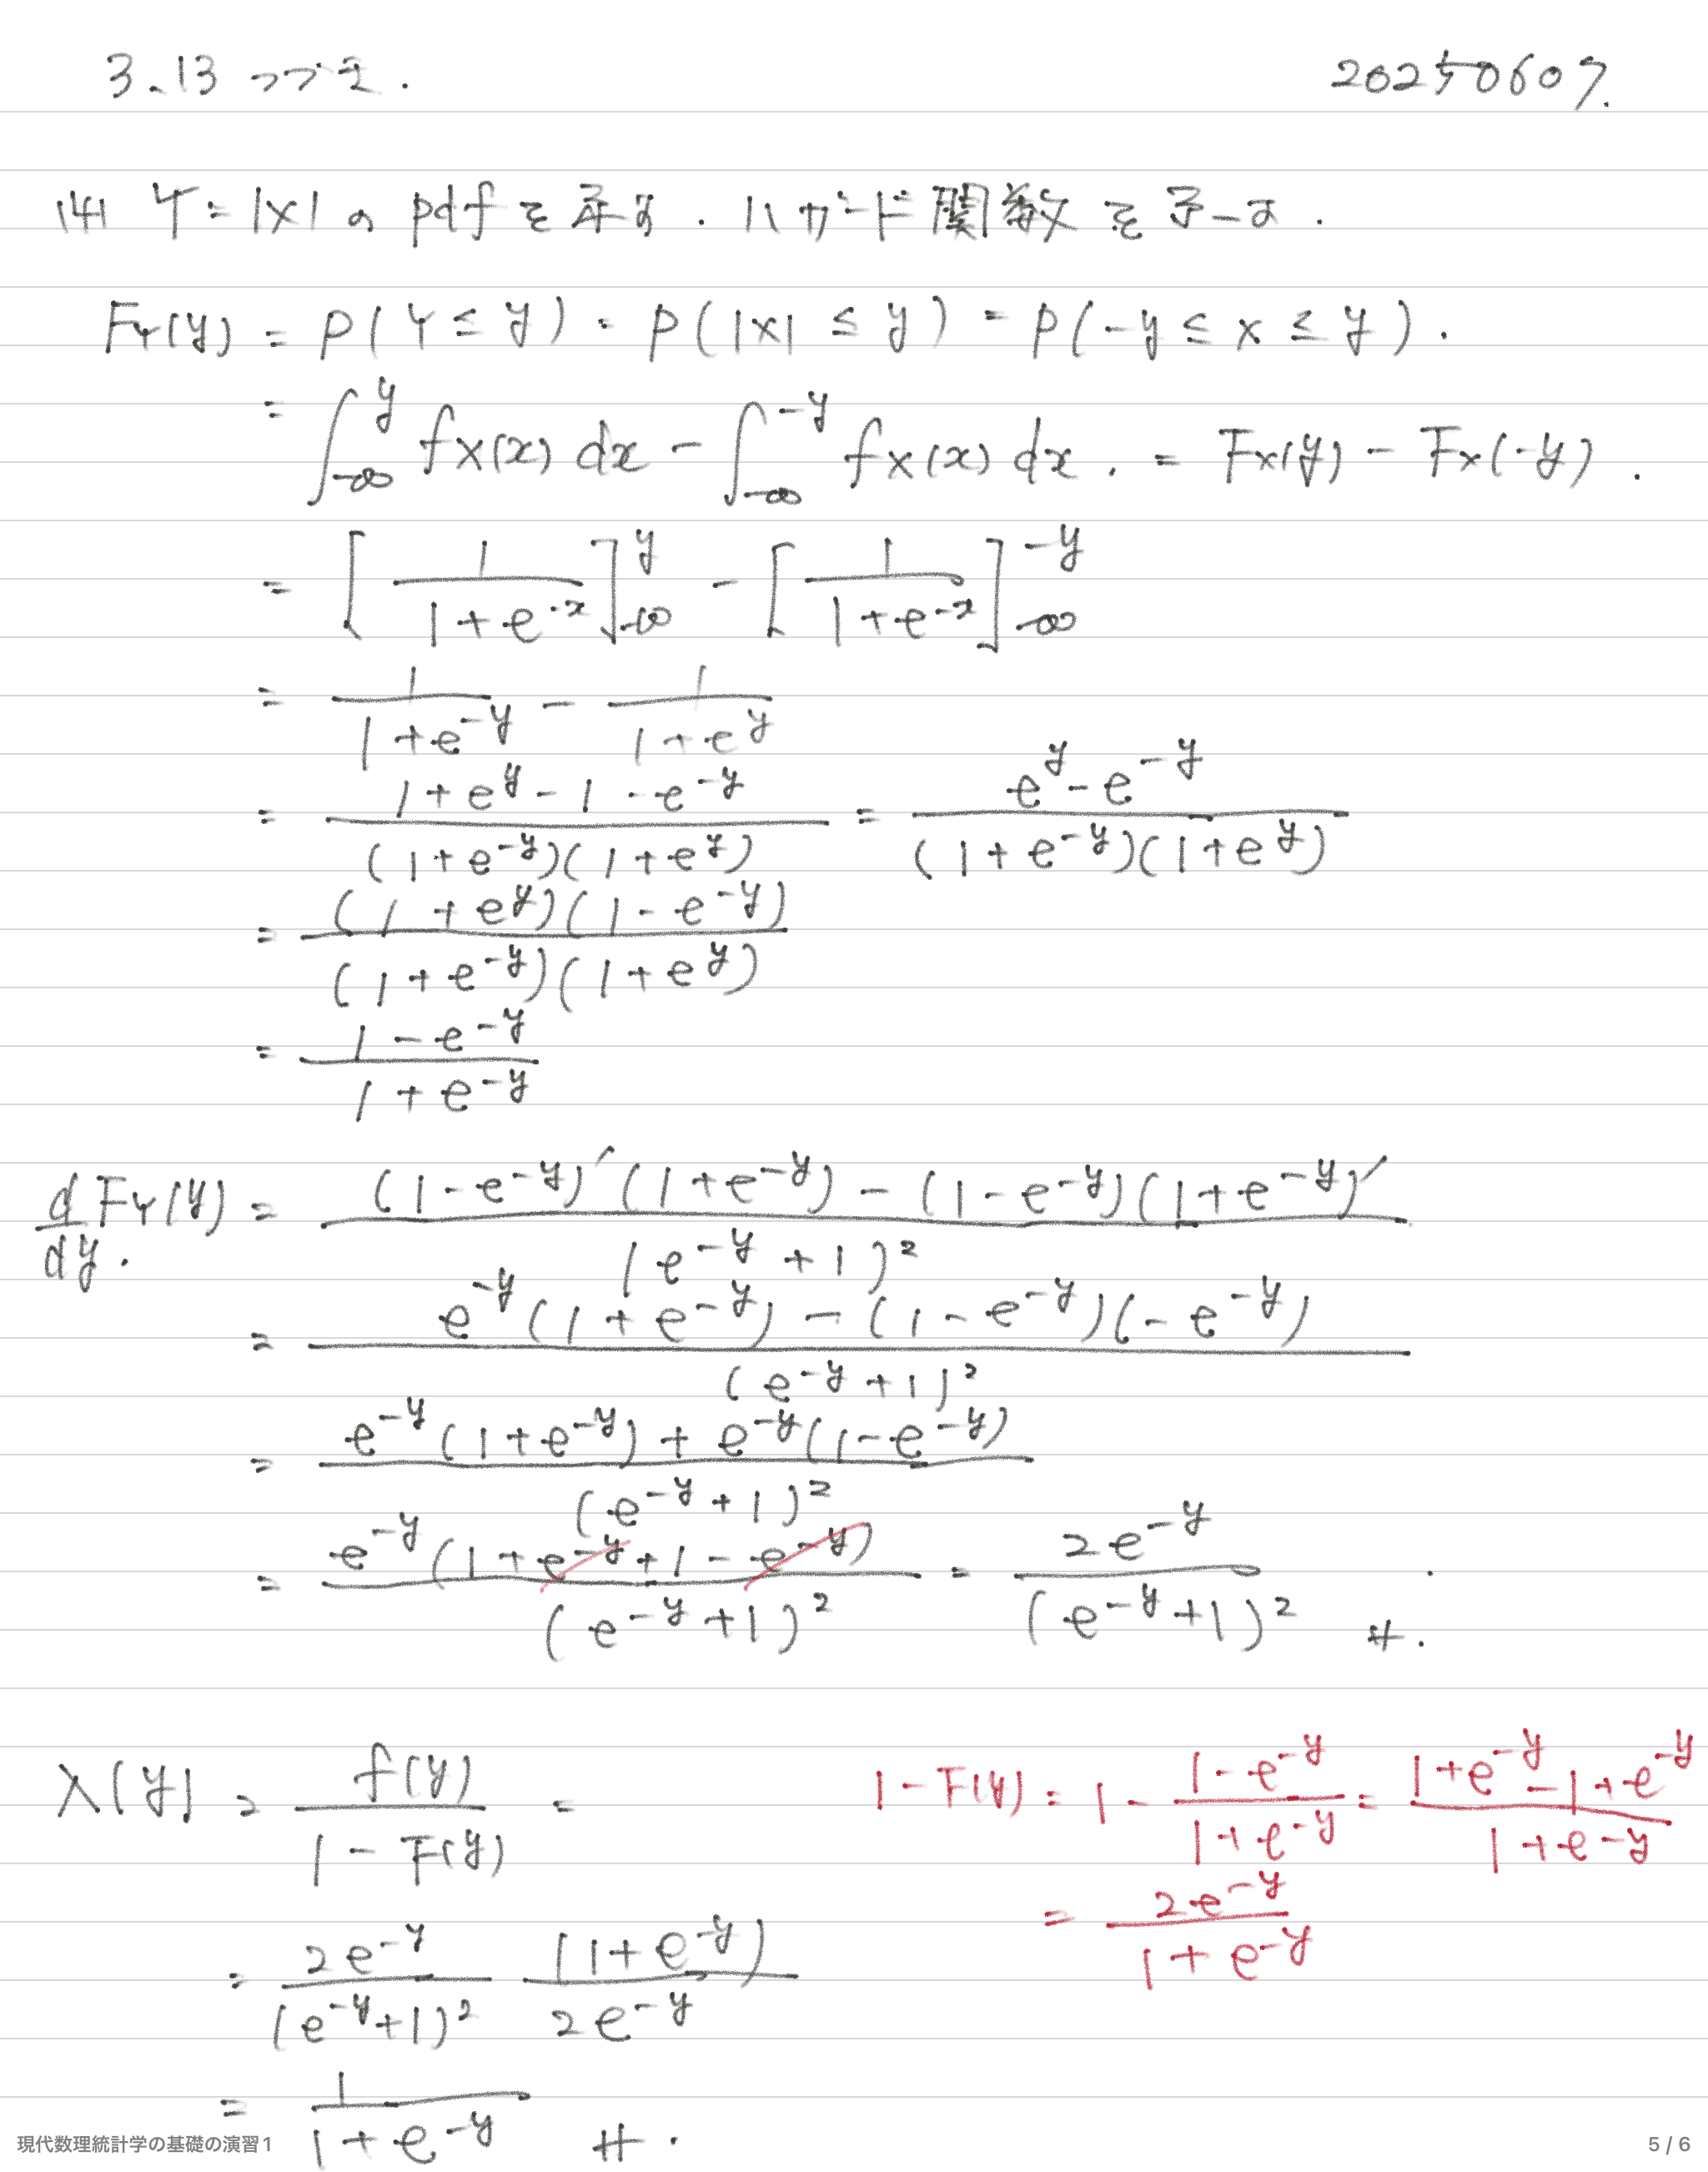 3.13 つづき. 20250607.
(4) Y = |X| の pdf を示す. ハザード関数を示す.
F_Y(y) = P(Y ≤ y) = P(|X| ≤ y) = P(-y ≤ X ≤ y).
= ∫_{-∞}^{y} f_X(x) dx - ∫_{-∞}^{-y} f_X(x) dx. = F_X(y) - F_X(-y).
= [1/(1+e^{-x})]_{-∞}^{y} - [1/(1+e^{-x})]_{-∞}^{-y}
= 1/(1+e^{-y}) - 1/(1+e^{y})
= (1+e^{y}-1-e^{-y})/((1+e^{-y})(1+e^{y})) = (e^{y}-e^{-y})/((1+e^{-y})(1+e^{y}))
= ((1+e^{y})(1-e^{-y}))/((1+e^{-y})(1+e^{y}))
= (1-e^{-y})/(1+e^{-y})
d/dy. F_Y(y) = ((1-e^{-y})'(1+e^{-y}) - (1-e^{-y})(1+e^{-y})')/(e^{-y}+1)^2
= (e^{-y}(1+e^{-y}) - (1-e^{-y})(-e^{-y}))/(e^{-y}+1)^2
= (e^{-y}(1+e^{-y}) + e^{-y}(1-e^{-y}))/(e^{-y}+1)^2
= (e^{-y}(1+e^{-y}+1-e^{-y}))/(e^{-y}+1)^2 = 2e^{-y}/(e^{-y}+1)^2 #.
λ(y) = f(y)/(1-F(y)) =
1-F(y) = 1 - (1-e^{-y})/(1+e^{-y}) = (1+e^{-y}-1+e^{-y})/(1+e^{-y})
= 2e^{-y}/(1+e^{-y})
= 2e^{-y}/(e^{-y}+1)^2 (1+e^{-y})/2e^{-y}
= 1/(1+e^{-y}) #.
現代数理統計学の基礎の演習1 5 / 6